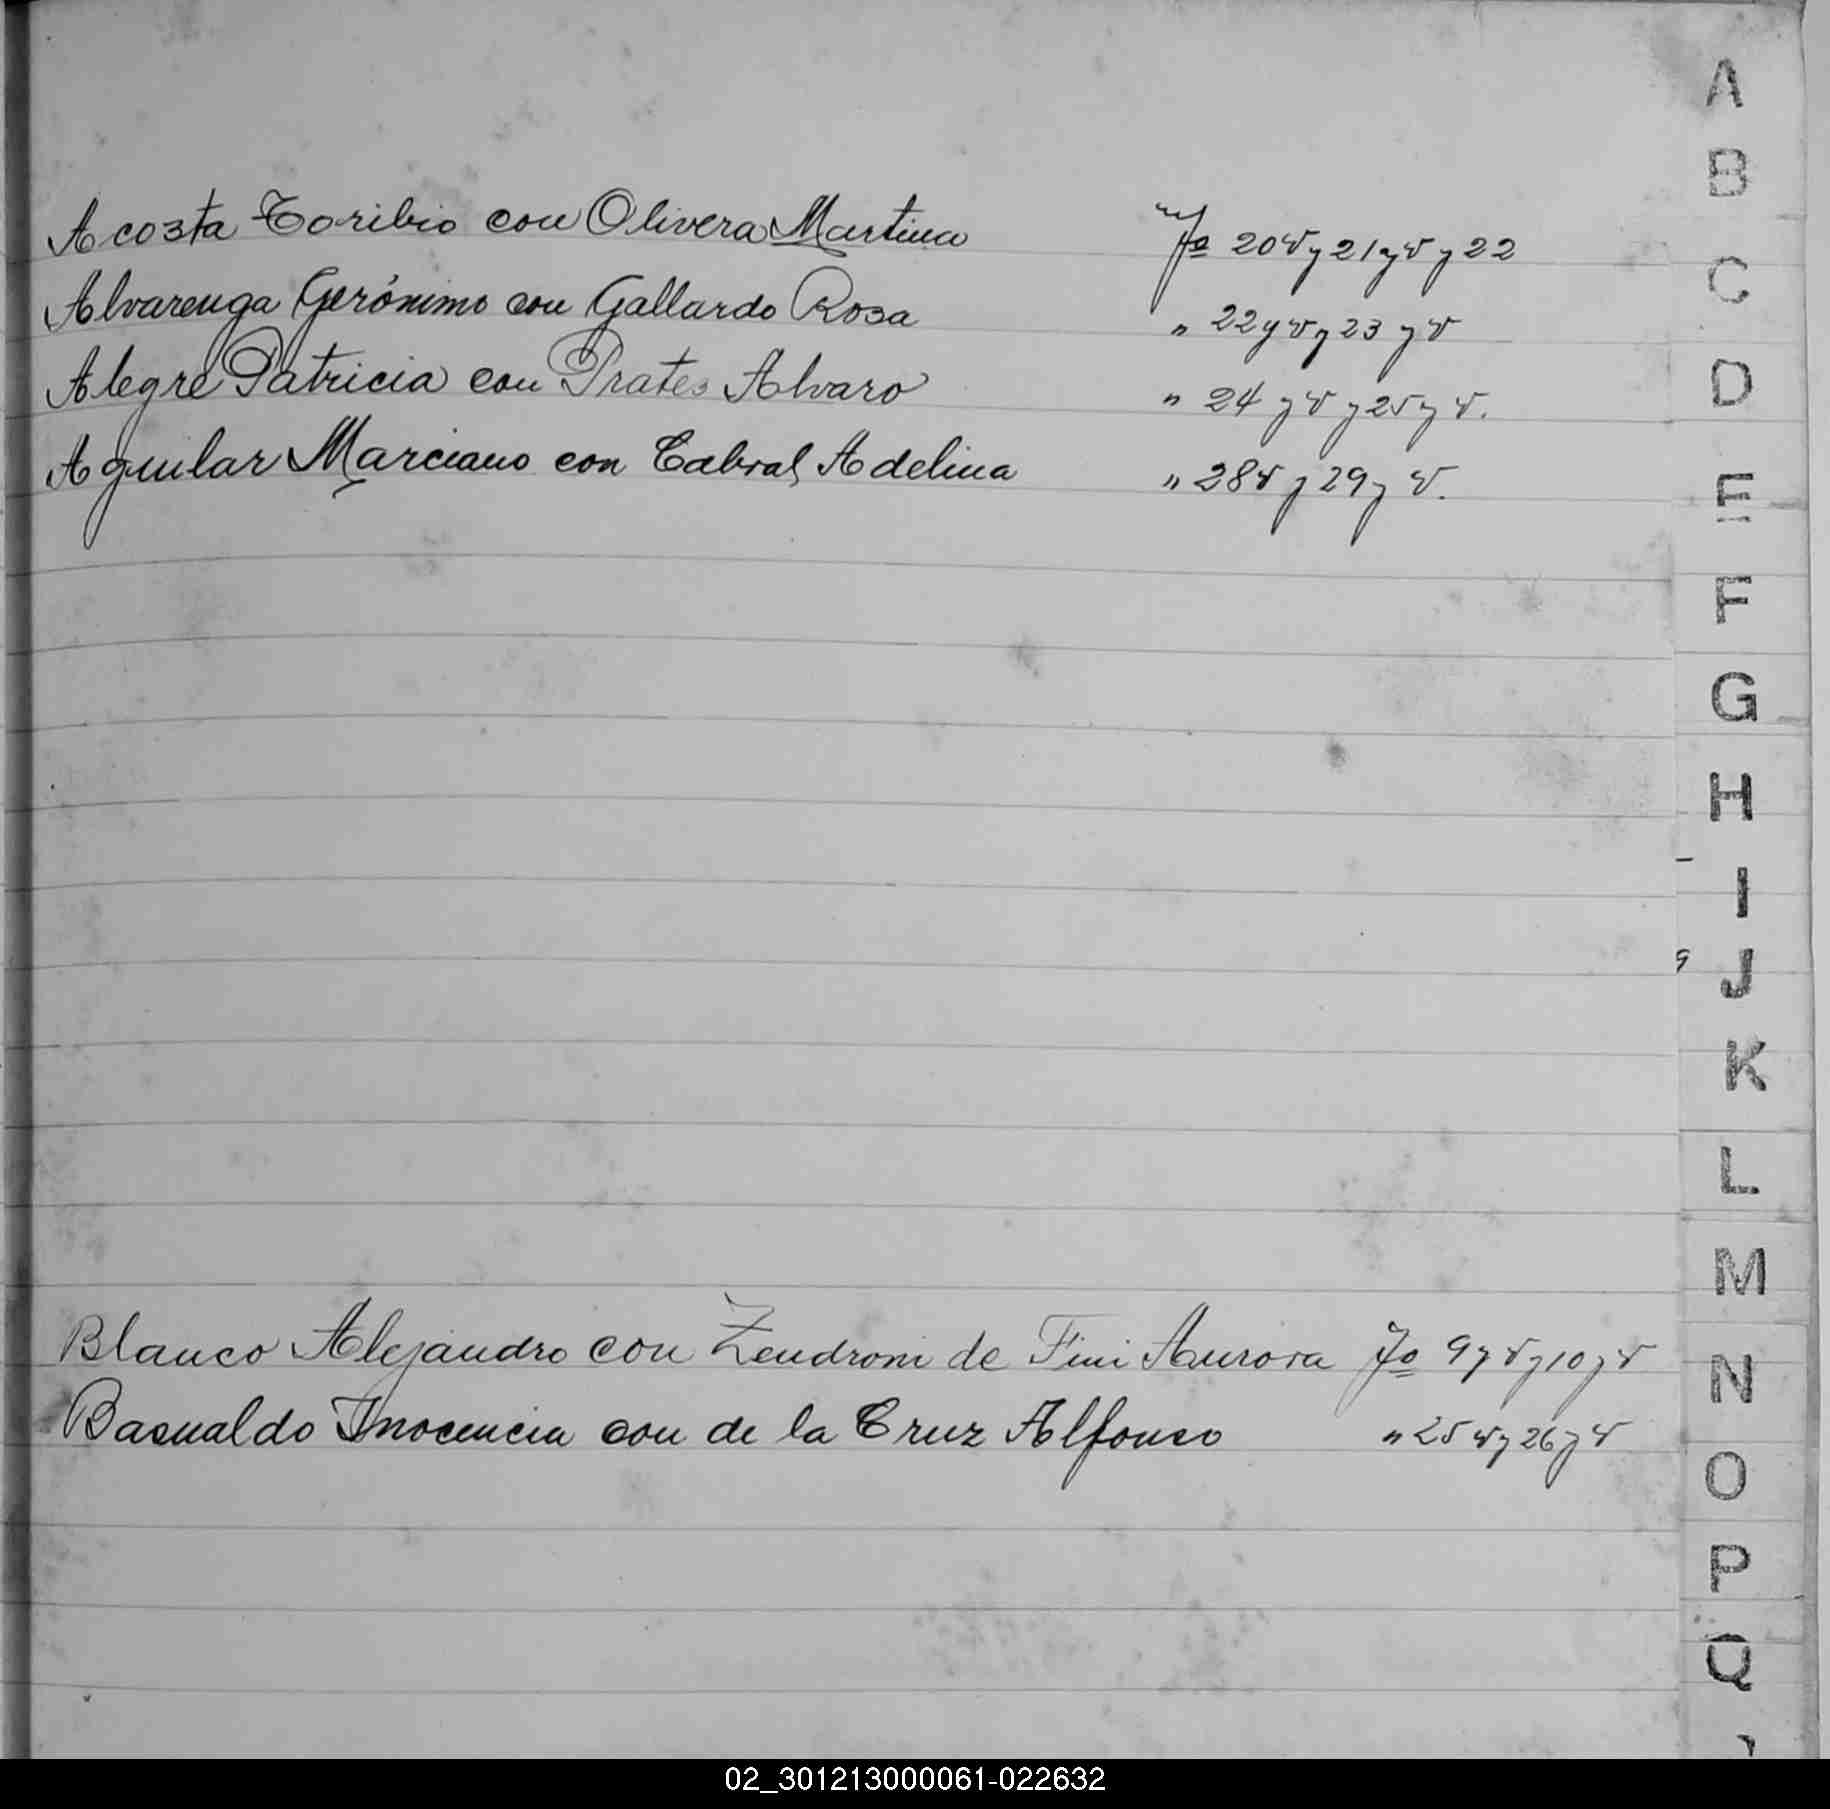 Acosta Toribio con Olivera Martina fo 20 v y 21 y v y 22
Alvarenga Gerónimo con Gallardo Rosa " 22 y v y 23 y v
Alegre Patricia con Prates Alvaro " 24 y v y 25 y v.
Aguilar Marciano con Cabral Adelina " 28 v y 29 y v.
Blanco Alejandro con Zendroni de Fini Aurora fo 9 y v y 10 y v
Basualdo Inocencia con de la Cruz Alfonso " 25 v y 26 y v
A
B
C
D
E
F
G
H
I
J
K
L
M
N
O
P
Q
02_301213000061-022632